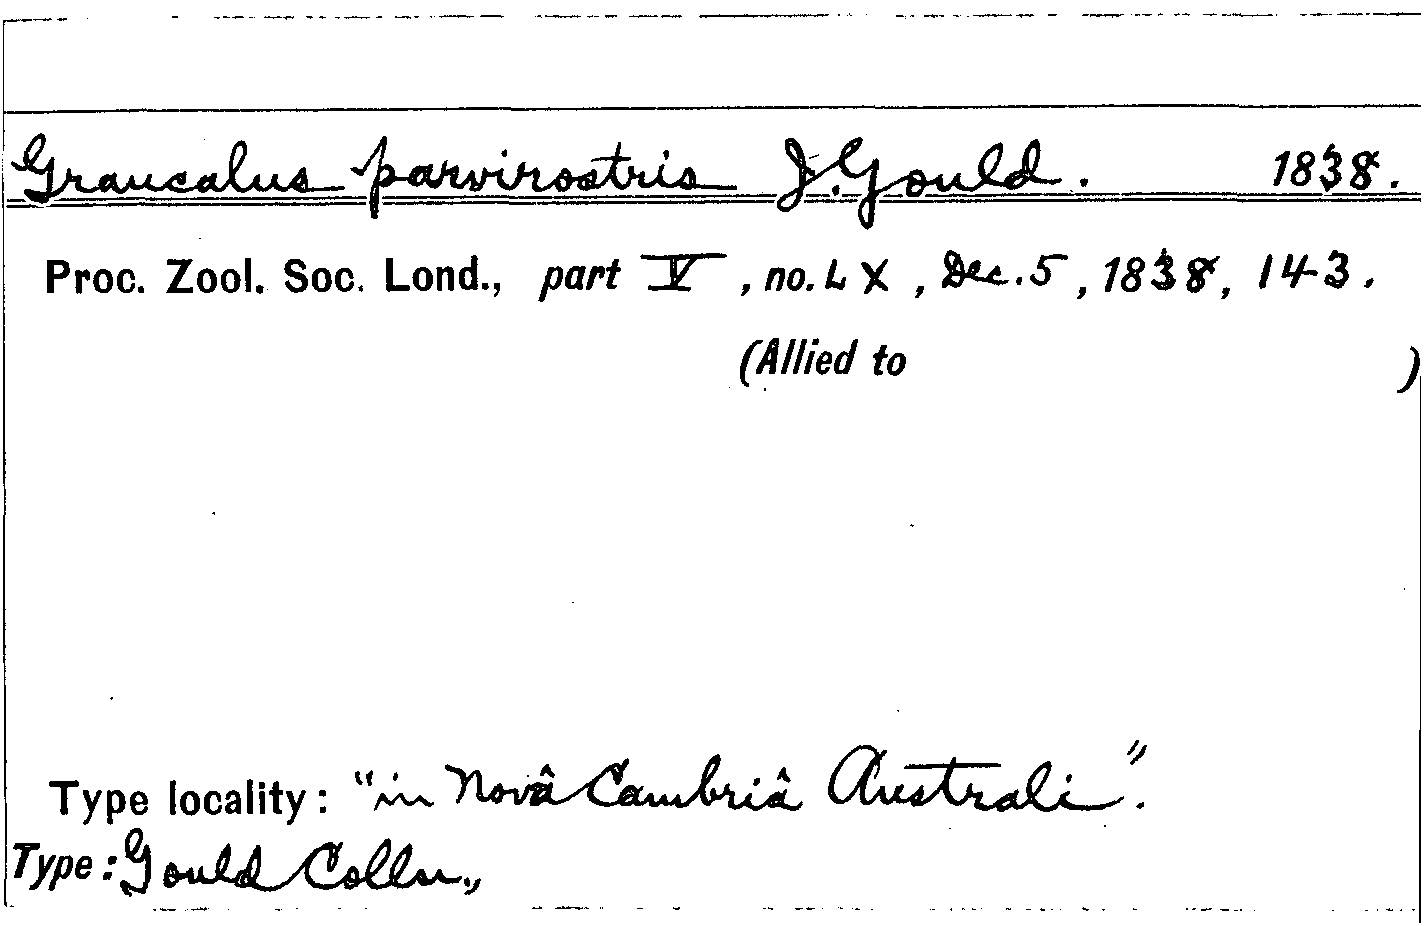 Graucalus parvirostris J. Gould. 1838.
Proc. Zool. Soc. Lond., part V, no. LX, Dec. 5, 1838, 143.
(Allied to )
Type locality: "in Novâ Cambriâ Australi".
Type: Gould Colln.,